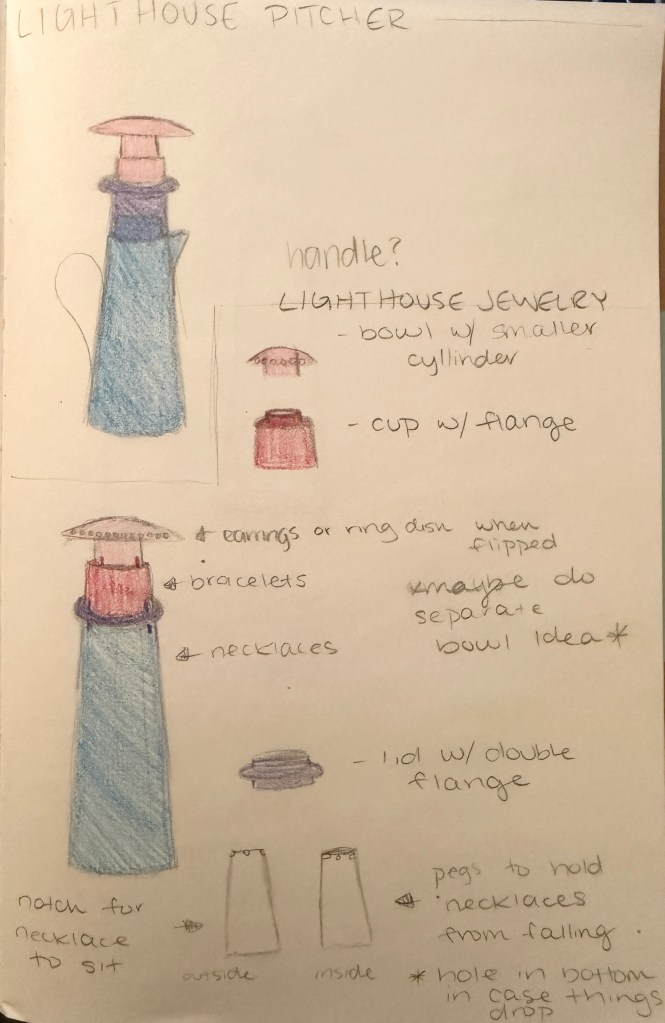 LIGHTHOUSE PITCHER
handle?
LIGHTHOUSE JEWELRY
- bowl w/ smaller
cyllinder
- cup w/ flange
earrings or ring dish when
flipped
bracelets
*maybe do
separate
bowl idea*
necklaces
- lid w/ double
flange
pegs to hold
necklaces
from falling.
notch for
necklace
to sit
outside
inside
* hole in bottom
in case things
drop